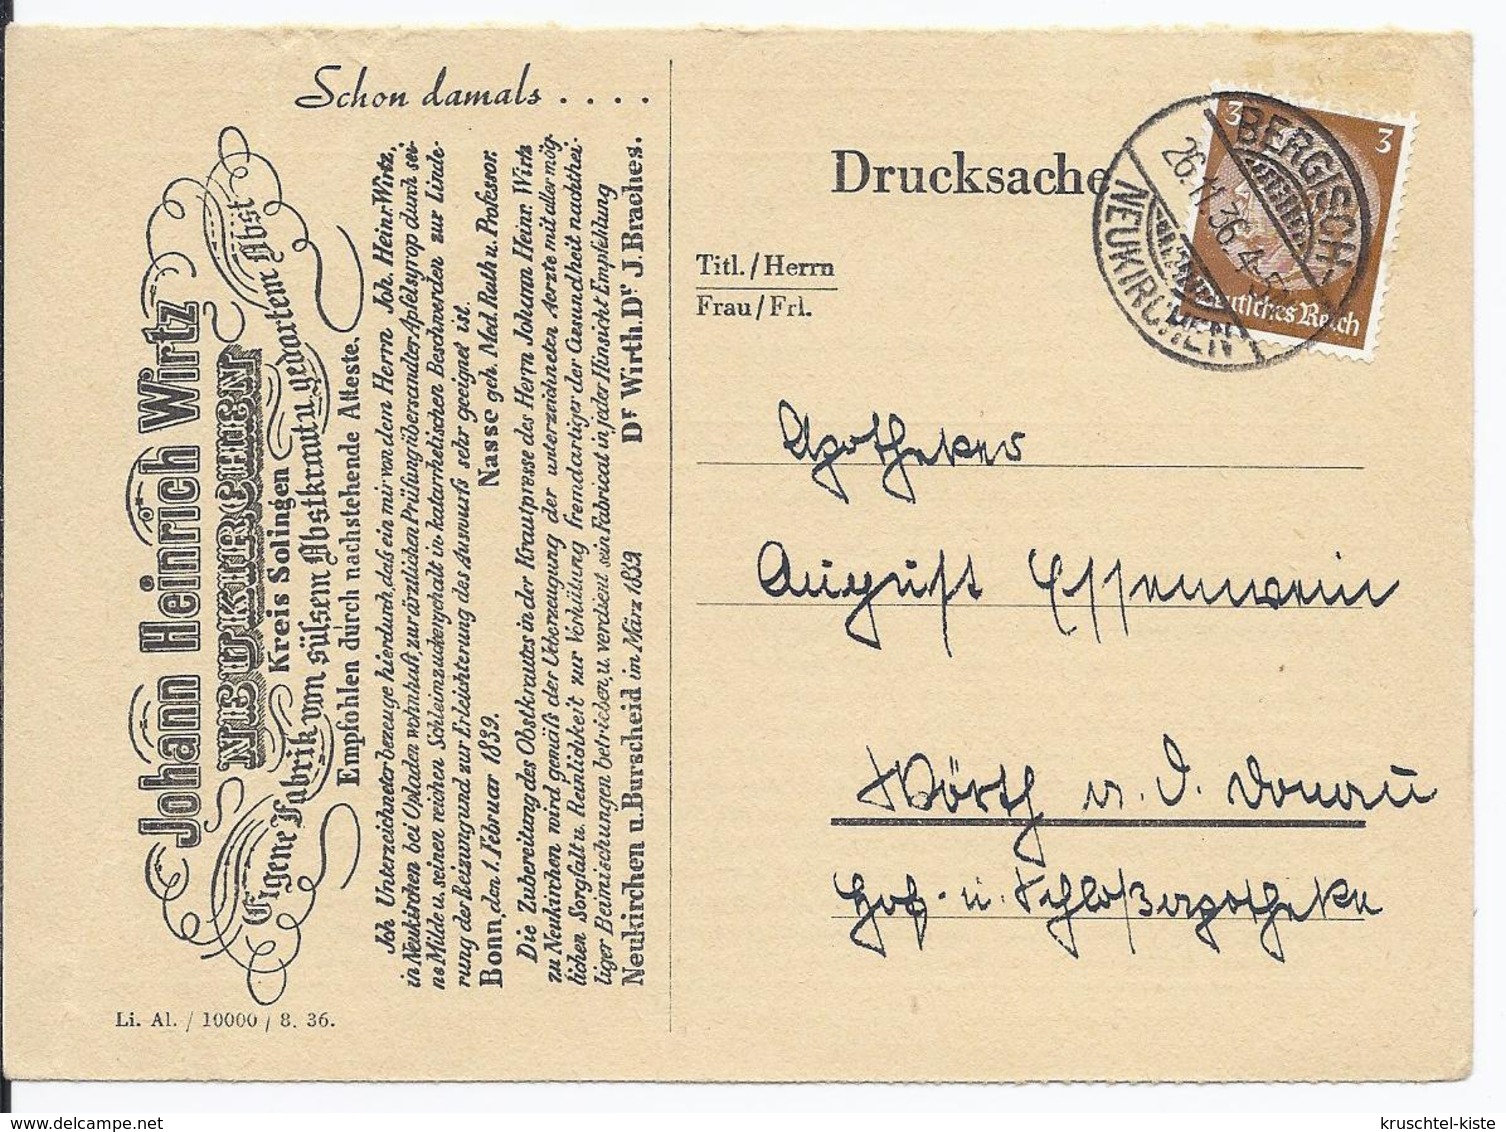 Schon damals . . . .
Johann Heinrich Wirtz
NEUKIRCHEN
Kreis Solingen
Eigene Fabrik von süssem Obstkraut u. gedartem Obst
Empfohlen durch nachstehende Atteste.
Ich Unterzeichneter bezeuge hierdurch, daß ein mir von dem Herrn Joh. Heinr. Wirtz,
in Neukirchen bei Opladen wohnhaft, zur ärztlichen Prüfung übersandter Apfelsyrop durch sei-
ne Milde u. seinen reichen Schleimzuckergehalt in katarrhelischen Beschwerden zur Linde-
rung der Reizung und zur Erleichterung des Auswurfs sehr geeignet ist.
Bonn, den 1. Februar 1839.
Nasse geh. Med. Rath u. Professor.
Die Zubereitung des Obstkrautes in der Krautpresse des Herrn Johann Heinr. Wirtz
zu Neukirchen wird gemäß der Ueberzeugung der unterzeichneten Aerzte mit aller mög-
lichen Sorgfalt u. Reinlichkeit zur Verhütung fremdartiger der Gesundheit nachthei-
liger Beimischungen betrieben, u. verdient sein Fabricat in jeder Hinsicht Empfehlung
Neukirchen u. Burscheid im März 1839
Dr Wirth. Dr J. Braches.
Li. Al. / 10000 / 8. 36.
Drucksache
Titl. / Herrn
Frau / Frl.
3 3
Deutsches Reich
BERGISCH
26.11.36.4-5
NEUKIRCHEN
Apotheker
August Essenwein
Wörth a. d. Donau
Hof- u. Schloßapotheke
www.delcampe.net
kruschtel-kiste